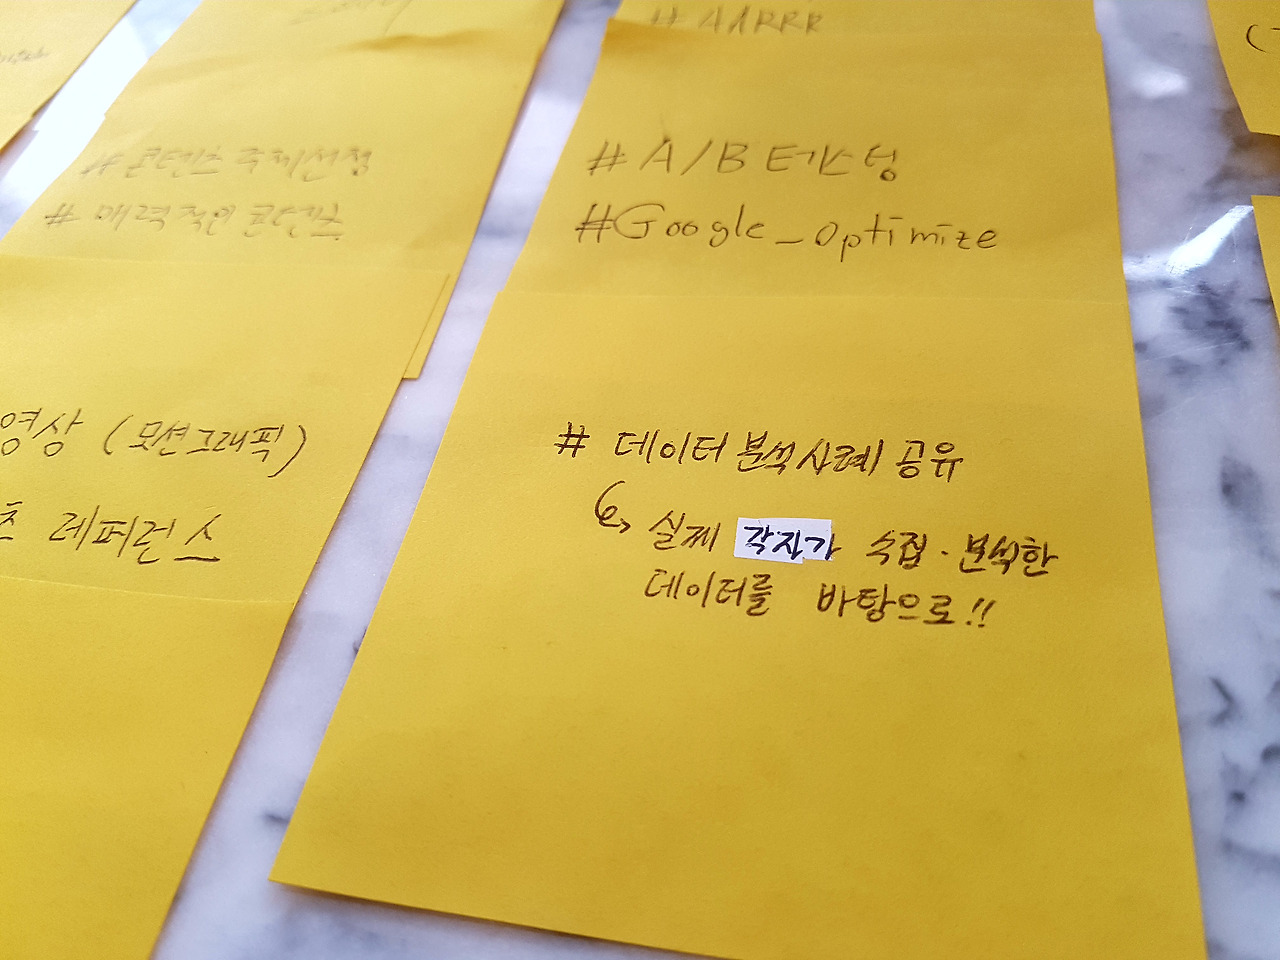 # AARRR
# 콘텐츠 주제선정
# 매력적인 콘텐츠
# A/B 테스팅
#Google_optimize
영상 (모션그래픽)
츠 레퍼런스
# 데이터 분석사례 공유
실제 각자가 수집·분석한
데이터를 바탕으로!!